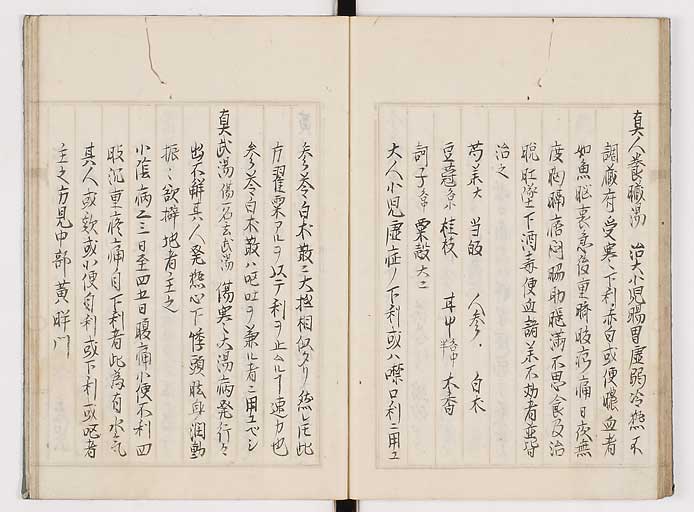 真人養臓湯 治大小児腸胃虚弱冷熱不
調蔵府受寒〻下利赤白或便膿血者
如魚脳裏急後重臍腹疼痛日夜無
度胸膈痞悶脇肋脹満不思食及治
脱肛墜下酒毒便血諸薬不効者並皆
治之
芍薬大 当皈 人参 白朮
豆蔲各小 桂枝 甘中 木香
訶子各中 粟殻大二
大人小児虚症ノ下利或ハ噤口利ニ用ユ
参苓白朮散ニ大抵相似タリ然レ𪜈此
方罌粟アルヲ以テ利ヲ止ムルヿ速カ也
参苓白朮散ハ嘔吐ヲ兼ル者ニ用ユベシ
真武湯 傷 名玄武湯 傷寒〻大湯病発行〻
出不解其人発熱心下悸頭眩身潤動
振〻欲擗地者主之
小陰病二三日至四五日腹痛小便不利四
肢沉重疼痛自下利者此為有水气
其人或欬或小便自利或下利或呕者
主之方見中部黄 門